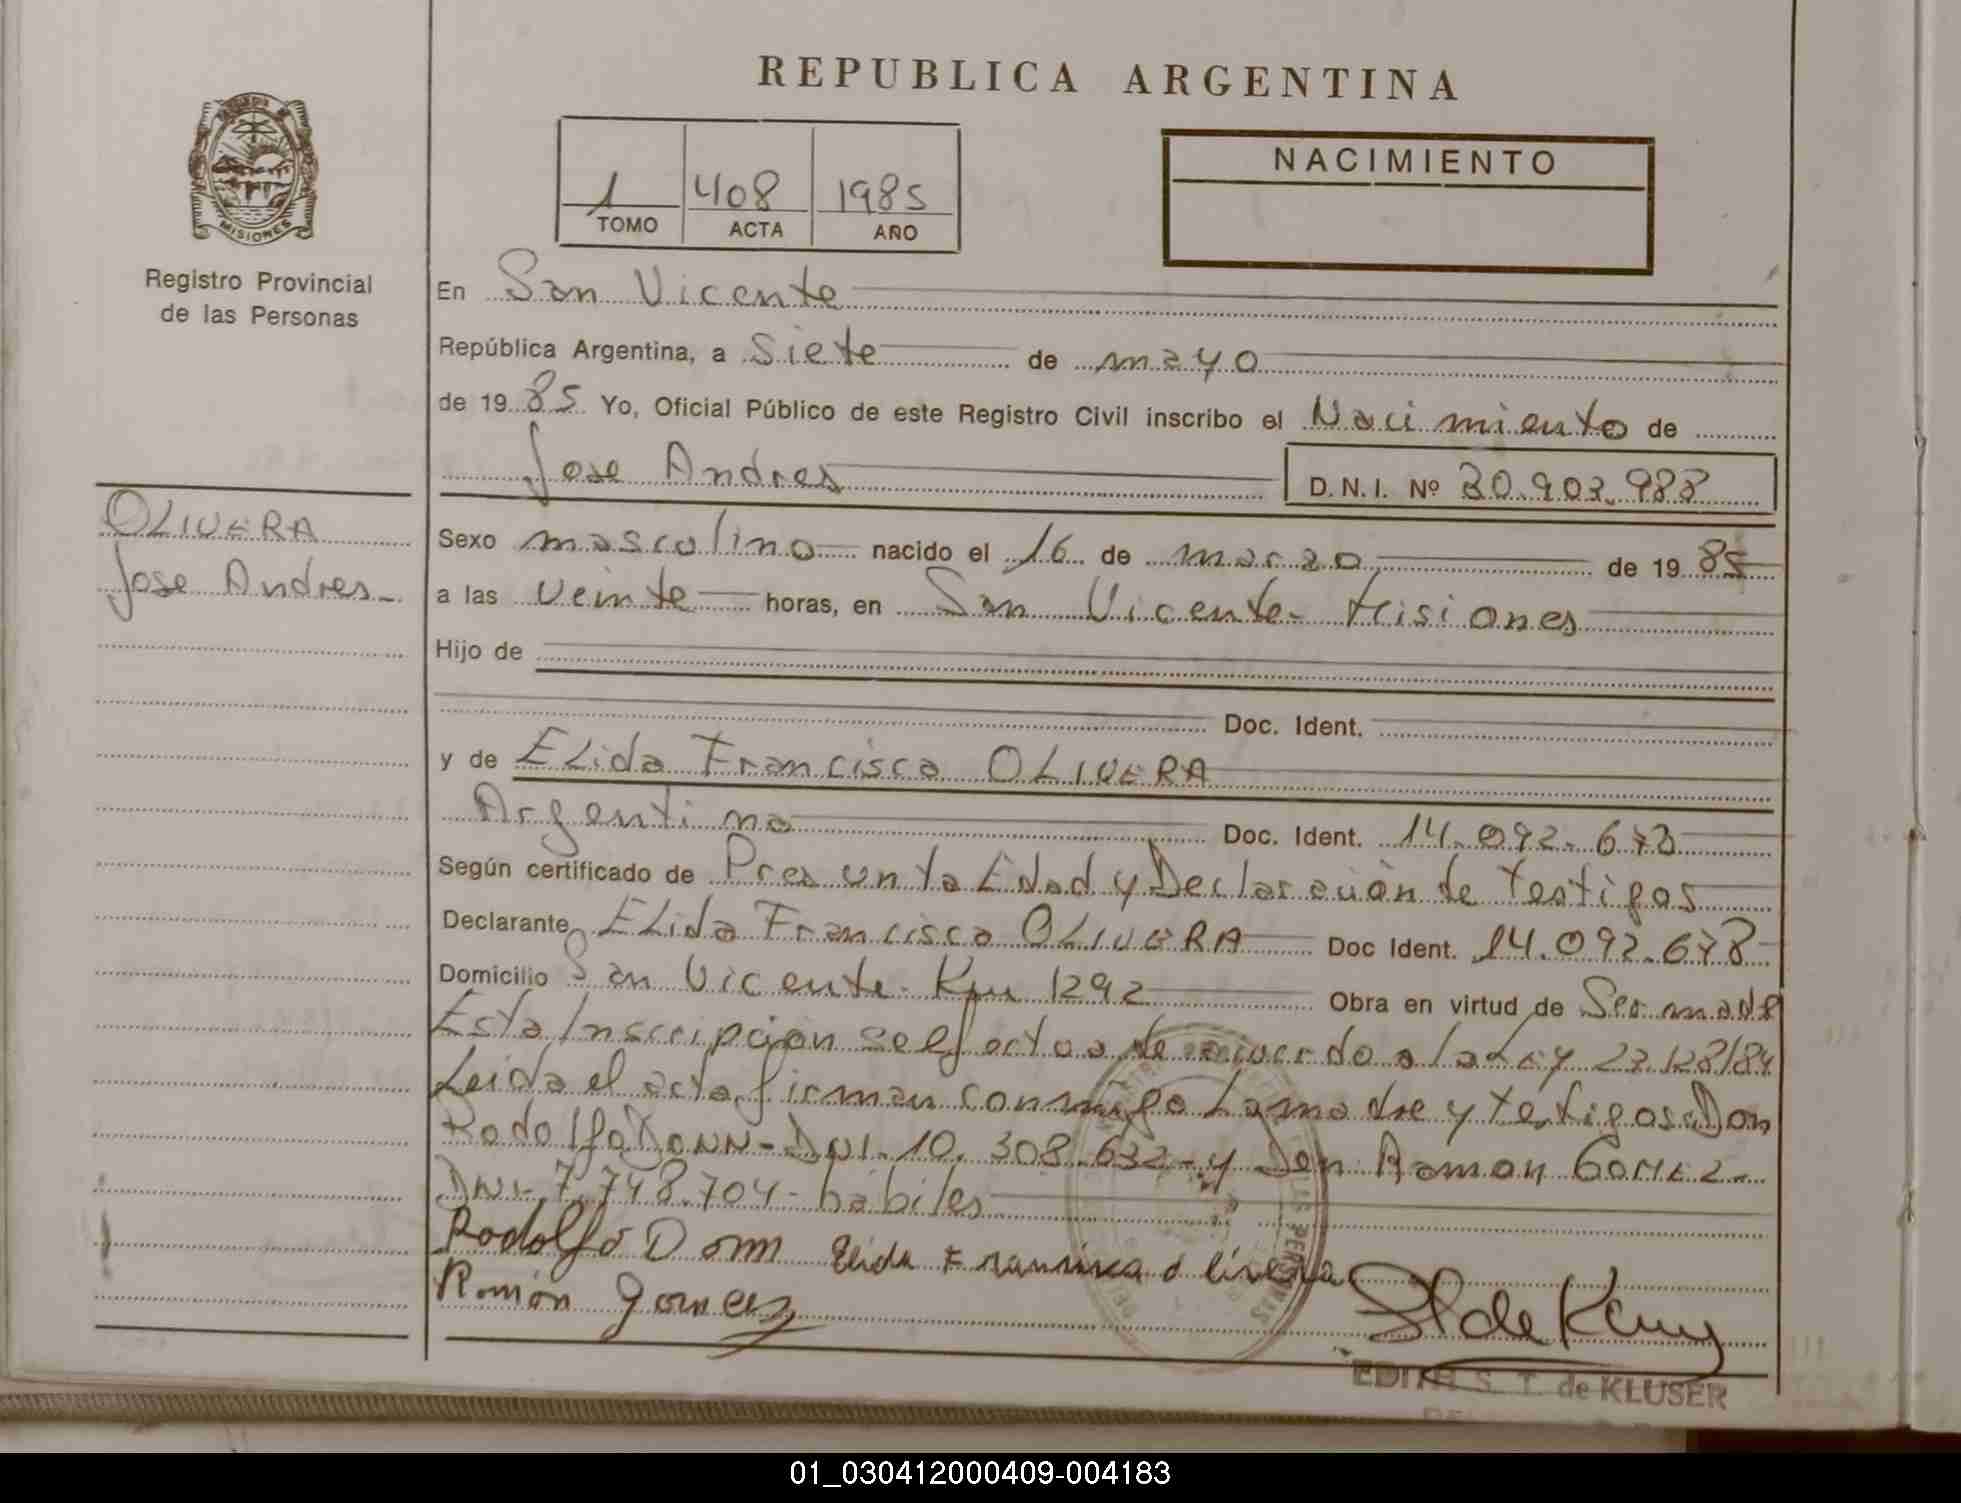 REPUBLICA ARGENTINA
MISIONES
Registro Provincial
de las Personas
1 408 1985
TOMO ACTA AÑO
NACIMIENTO
En San Vicente
República Argentina, a Siete de mayo
de 1985 Yo, Oficial Público de este Registro Civil inscribo el Nacimiento de
Jose Andres D.N.I. Nº 30.903.988
OLIVERA
Jose Andres
Sexo masculino nacido el 16 de marzo de 1985
a las Veinte horas, en San Vicente- Misiones
Hijo de
Doc. Ident.
y de ELida Francisca OLIVERA
Argentina Doc. Ident. 14.092.678
Según certificado de Presunta Edad y Declaración de Testigos
Declarante ELida Francisca OLIVERA Doc Ident. 14.092.678
Domicilio San Vicente- Km 1292 Obra en virtud de Ser madre
Esta Inscripción se efectua de acuerdo a la Ley 23.128/84
Leida el acta firman conmigo La madre y testigos Don
Rodolfo DONN- DNI- 10.308.632- y Don Ramon GOMEZ-
DNI- 7.748.704- habiles
Rodolfo Donn Elida Francisca olivera
Ramón gomez
EDITH S. T. de KLUSER
01_030412000409-004183